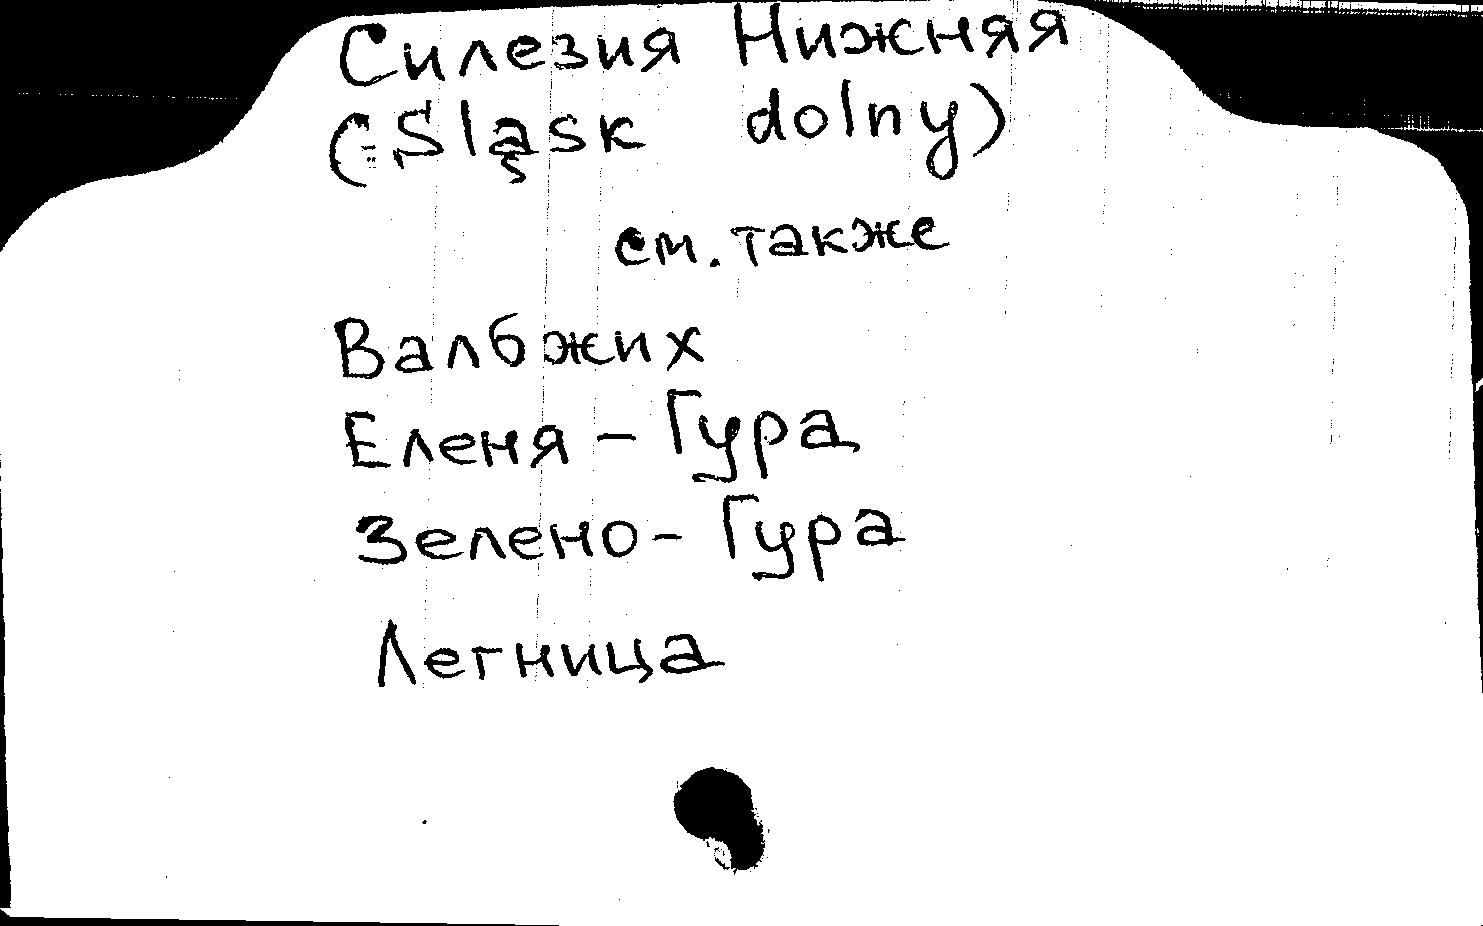 Силезия Нижняя
(Sląsk dolny)
см. также
Валбжих
Еленя - Гура
Зелено - Гура
Легница